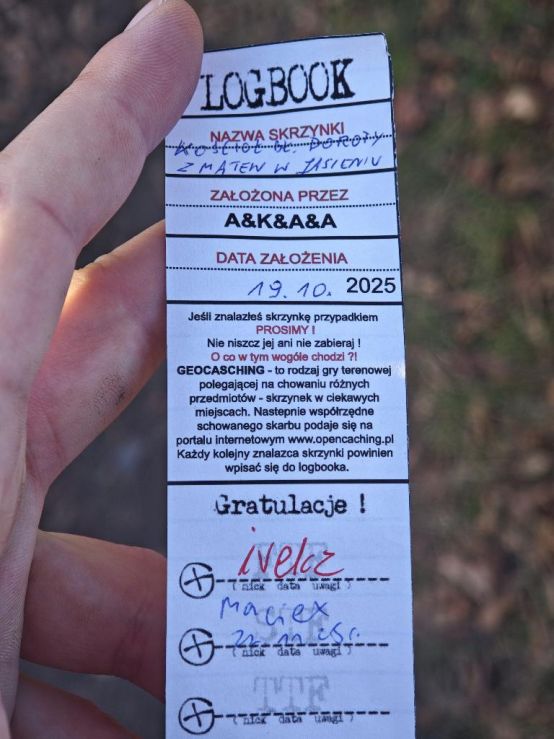 LOGBOOK
NAZWA SKRZYNKI
KOŚCIÓŁ ŚW. DOROTY
Z MATEW W JASIENIU
ZAŁOŻONA PRZEZ
A&K&A&A
DATA ZAŁOŻENIA
19.10. 2025
Jeśli znalazłeś skrzynkę przypadkiem
PROSIMY !
Nie niszcz jej ani nie zabieraj !
O co w tym wogóle chodzi ?!
GEOCASCHING - to rodzaj gry terenowej
polegającej na chowaniu różnych
przedmiotów - skrzynek w ciekawych
miejscach. Nastepnie współrzędne
schowanego skarbu podaje się na
portalu internetowym www.opencaching.pl
Każdy kolejny znalazca skrzynki powinien
wpisać się do logbooka.
Gratulacje !
ivelez
( nick data uwagi )
Maciex
( nick data uwagi )
TTF
( nick data uwagi )